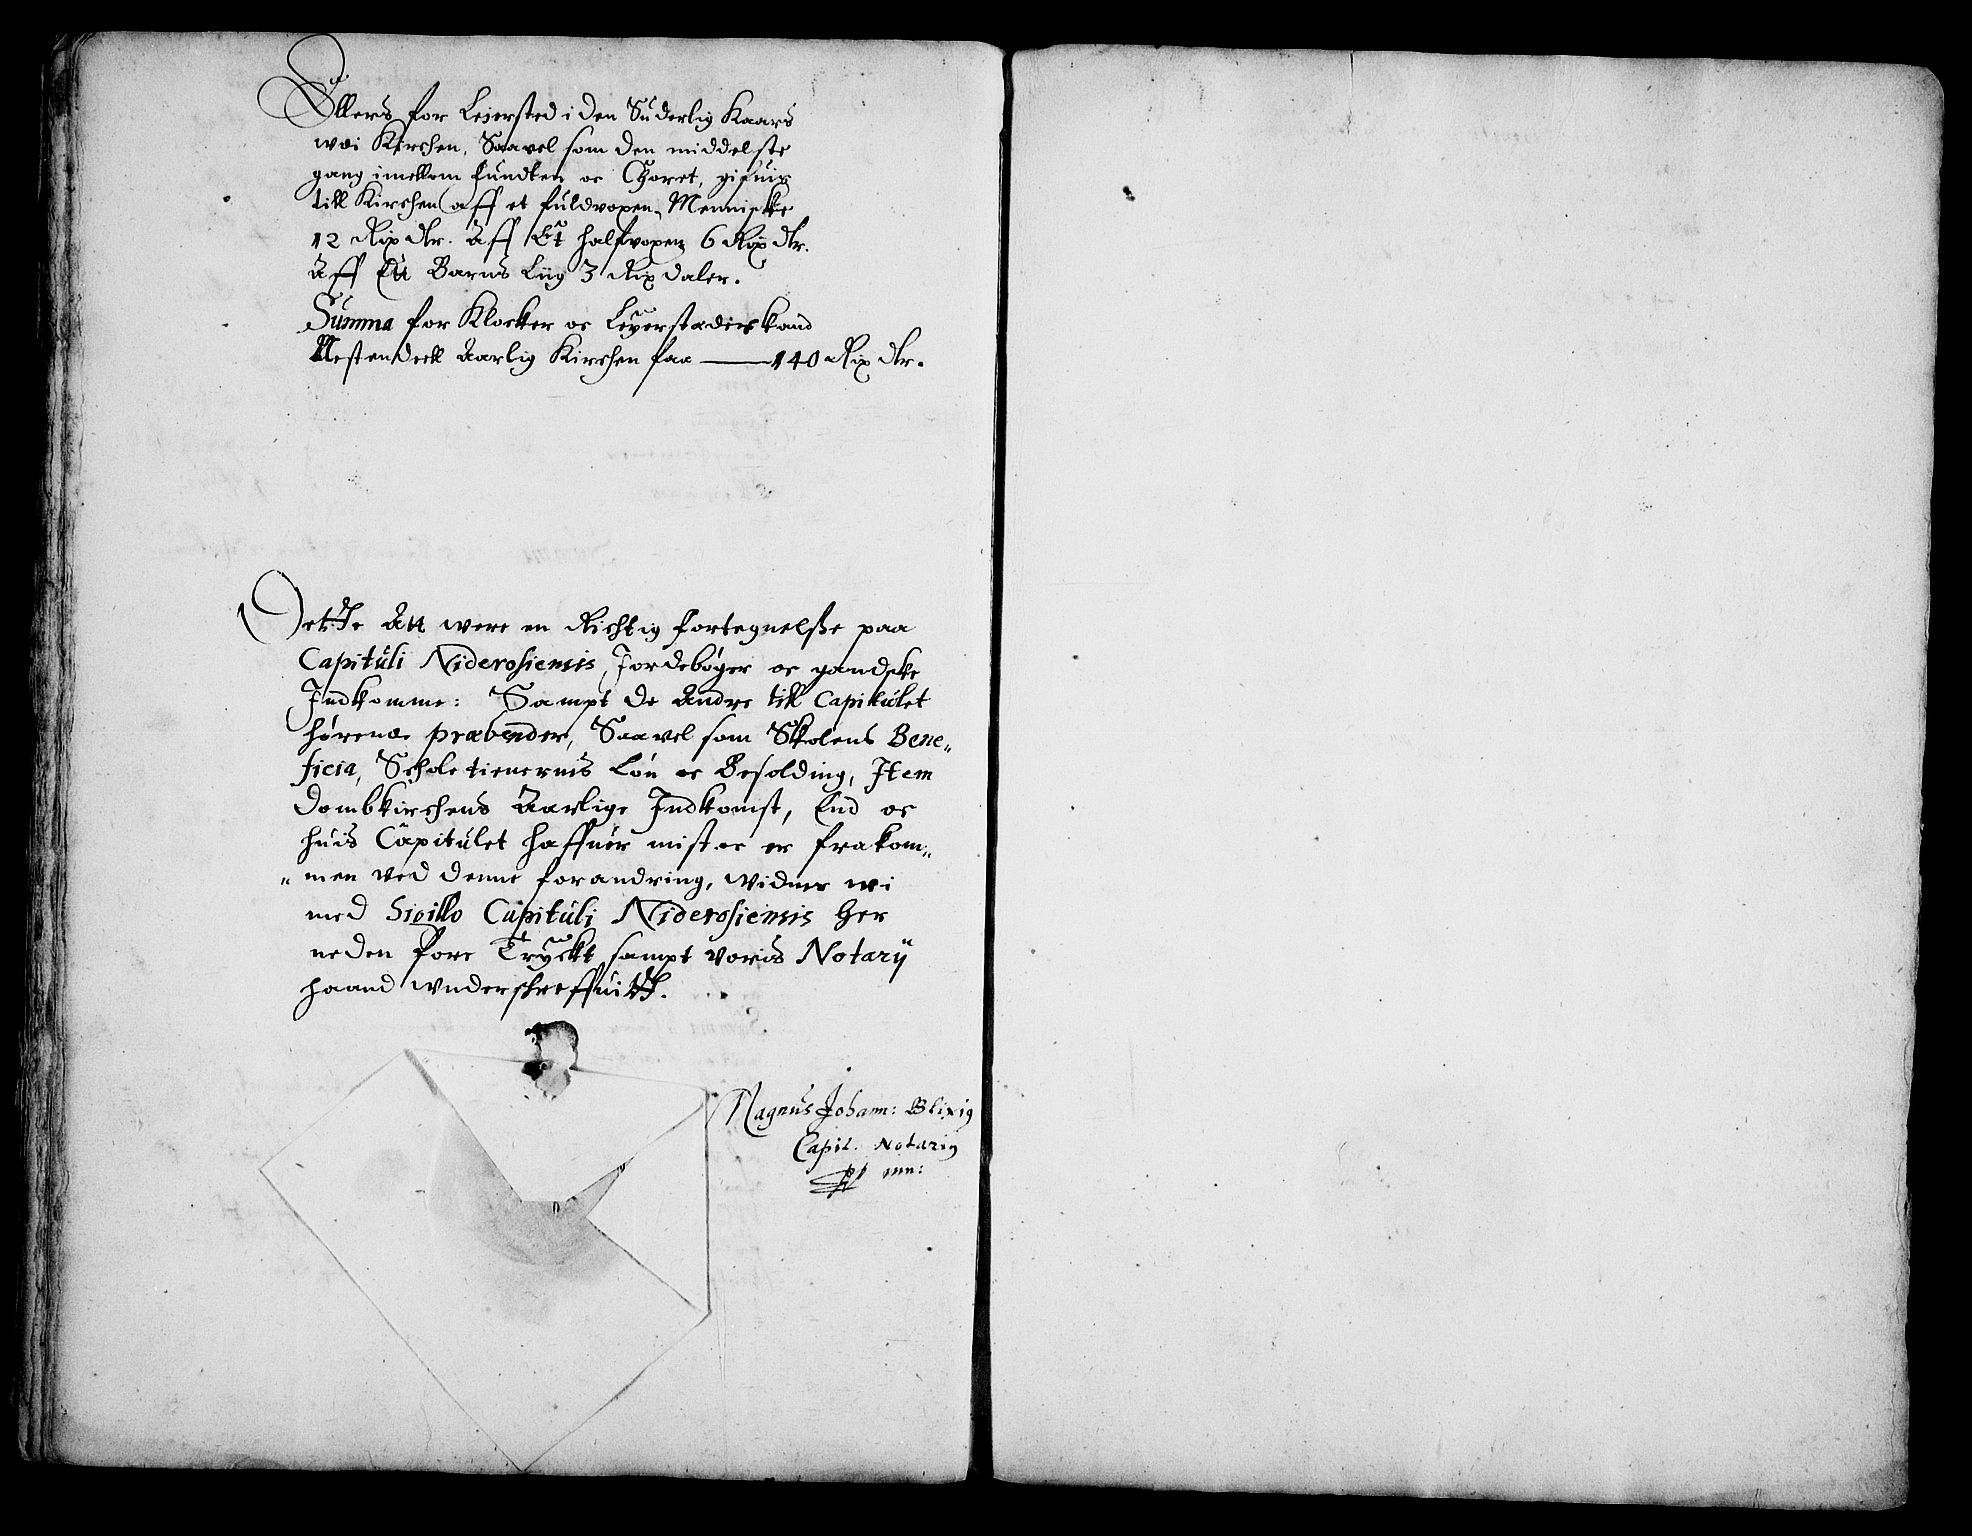 Ellers for Leiersted i den Suderlig Kaars
wei Kirchen, Saavel som den middelste
gang imellom fundten oc Choret, gifuis
till Kirchen aff et fuldvoxen Menniske
12 Rix dlr. Aff Et halfvoxen 6 Rix dlr.
Aff Ett Barns Liig 3 Rix daler.
Summa for Klocker oc Leyerstæder kand
Mestendeell Aarlig Kirchen faa — 140 Rix dlr.
Dette Att were en Richtig fortegnelsse paa
Capituli Niderosiensis Jordebøger oc gandske
Indkomme: Sampt de Andre till Capitulet
hørende præbender, Saavel som Skolens Bene„
ficia, Scholetienernis Løn oc Besolding, Item
Dombkirchens Aarlige Indkomst, End oc
huis Capitulet haffuer mist oc er frakom„
„men ved denne forandring, widner wi
med Sigillo Capituli Niderosiensis her
neden fore Tryckt sampt voris Notarij
haand wnderskreffuitt.
Magnus Johann: Blixig
Capit. Notarig
mn: